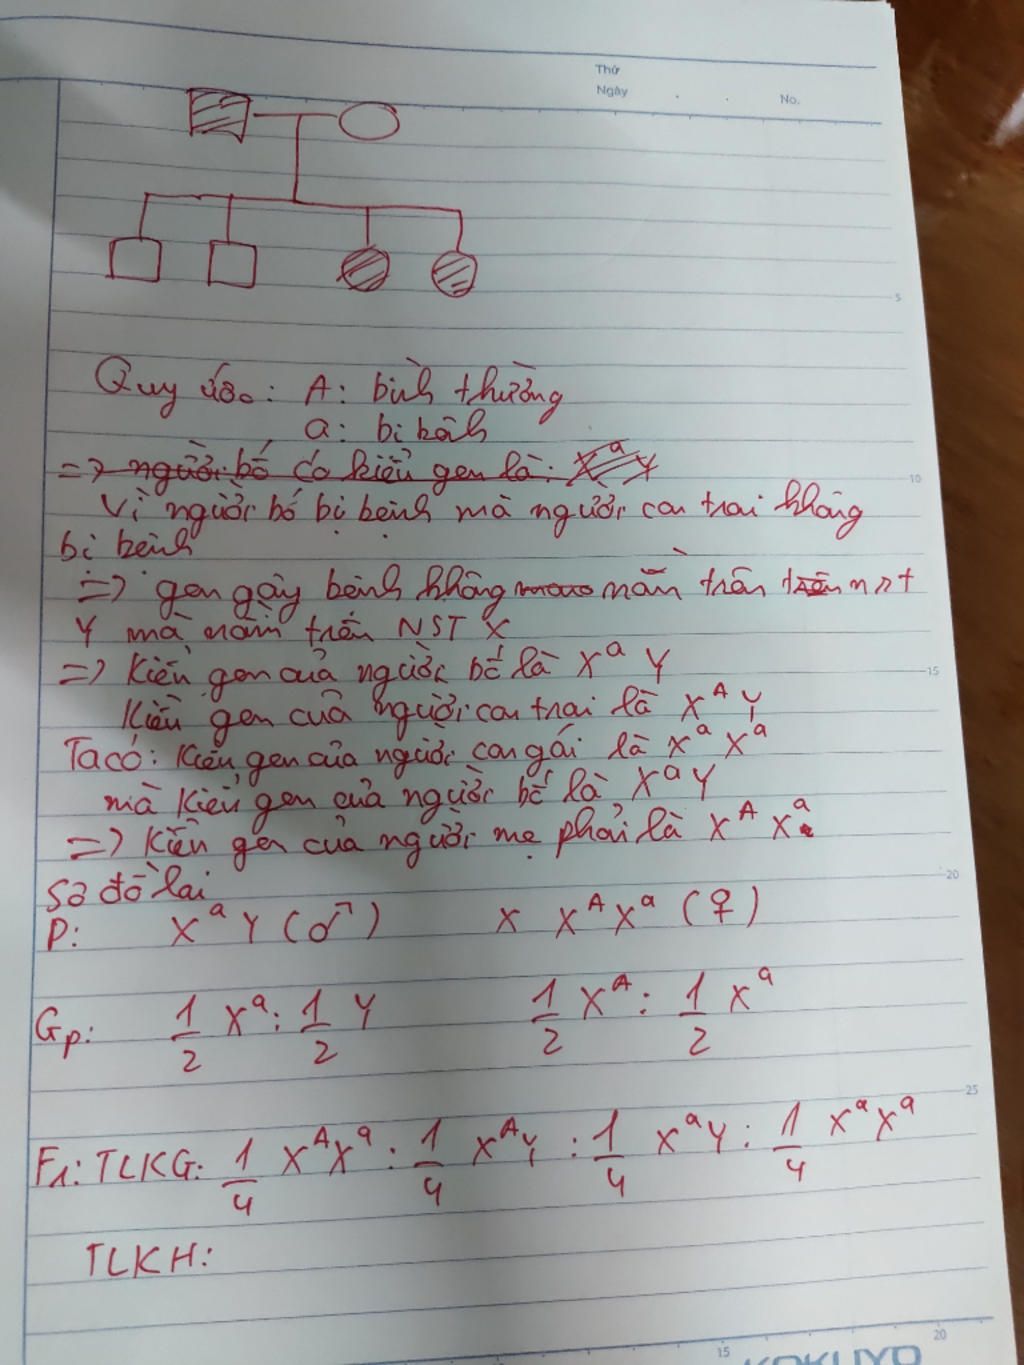 Thứ
Ngày
No.
5
Quy ước: A: bình thường
a: bị bệnh
=> người bố có kiểu gen là: XᵃY
10
Vì người bố bị bệnh mà người con trai không
bị bệnh
=> gen gây bệnh không nằm trên trên nst
Y mà nằm trên NST X
=> Kiểu gen của người bố là XᵃY
15
Kiểu gen của người con trai là XᴬY
Ta có: Kiểu gen của người con gái là XᵃXᵃ
mà kiểu gen của người bố là XᵃY
=> Kiểu gen của người mẹ phải là XᴬXᵃ
Sơ đồ lai
20
P: XᵃY (♂) x XᴬXᵃ (♀)
Gp: 1/2 Xᵃ : 1/2 Y 1/2 Xᴬ : 1/2 Xᵃ
25
F₁: TLKG: 1/4 XᴬXᵃ : 1/4 XᴬY : 1/4 XᵃY : 1/4 XᵃXᵃ
TLKH:
15 20
KOKUYO